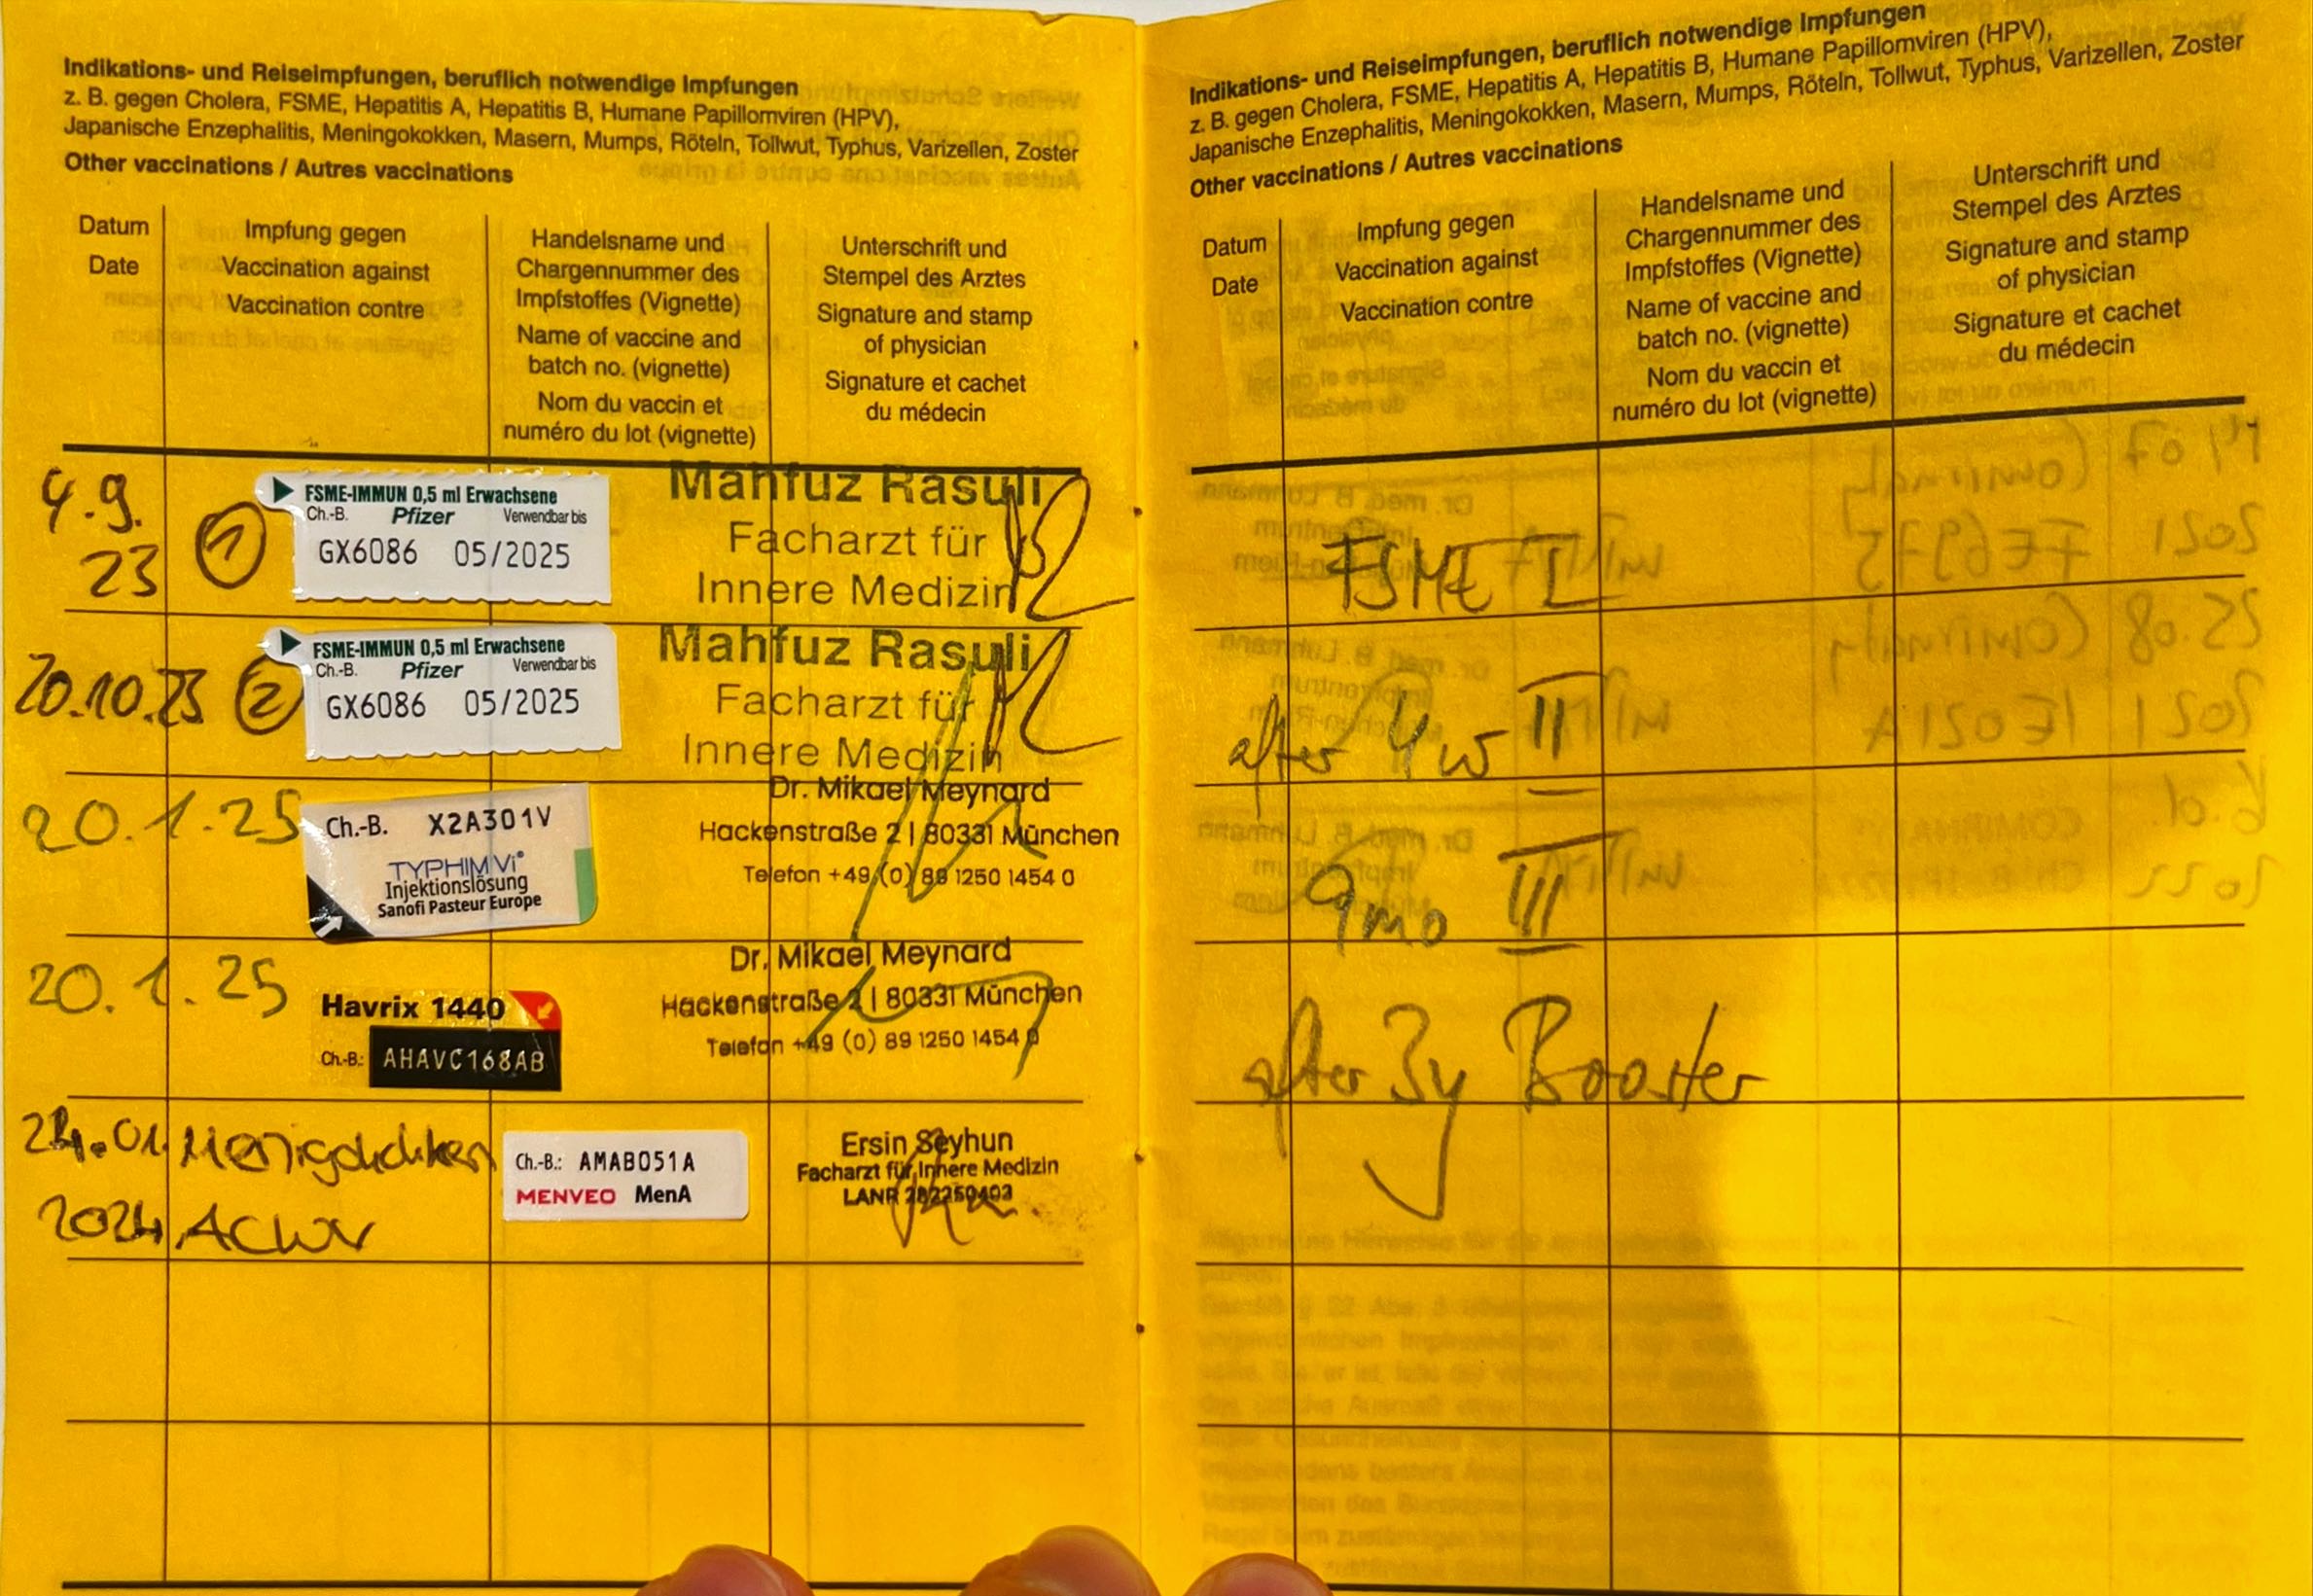 Indikations- und Reiseimpfungen, beruflich notwendige Impfungen
z. B. gegen Cholera, FSME, Hepatitis A, Hepatitis B, Humane Papillomviren (HPV),
Japanische Enzephalitis, Meningokokken, Masern, Mumps, Röteln, Tollwut, Typhus, Varizellen, Zoster
Other vaccinations / Autres vaccinations
Datum
Date
Impfung gegen
Vaccination against
Vaccination contre
Handelsname und
Chargennummer des
Impfstoffes (Vignette)
Name of vaccine and
batch no. (vignette)
Nom du vaccin et
numéro du lot (vignette)
Unterschrift und
Stempel des Arztes
Signature and stamp
of physician
Signature et cachet
du médecin
4.9.
23
1
FSME-IMMUN 0,5 ml Erwachsene
Ch.-B. Pfizer Verwendbar bis
GX6086 05/2025
Mahfuz Rasuli
Facharzt für
Innere Medizin
20.10.23
2
FSME-IMMUN 0,5 ml Erwachsene
Ch.-B. Pfizer Verwendbar bis
GX6086 05/2025
Mahfuz Rasuli
Facharzt für
Innere Medizin
20.1.25
Ch.-B. X2A301V
TYPHIM Vi®
Injektionslösung
Sanofi Pasteur Europe
Dr. Mikael Meynard
Hackenstraße 2 | 80331 München
Telefon +49 (0) 89 1250 1454 0
20.1.25
Havrix 1440
Ch.-B.: AHAVC168AB
Dr. Mikael Meynard
Hackenstraße 2 | 80331 München
Telefon +49 (0) 89 1250 1454 0
24.01.
2024
ACWY
Ch.-B.: AMAB051A
MENVEO MenA
Ersin Seyhun
Facharzt für Innere Medizin
LANR
Indikations- und Reiseimpfungen, beruflich notwendige Impfungen
z. B. gegen Cholera, FSME, Hepatitis A, Hepatitis B, Humane Papillomviren (HPV),
Japanische Enzephalitis, Meningokokken, Masern, Mumps, Röteln, Tollwut, Typhus, Varizellen, Zoster
Other vaccinations / Autres vaccinations
Datum
Date
Impfung gegen
Vaccination against
Vaccination contre
Handelsname und
Chargennummer des
Impfstoffes (Vignette)
Name of vaccine and
batch no. (vignette)
Nom du vaccin et
numéro du lot (vignette)
Unterschrift und
Stempel des Arztes
Signature and stamp
of physician
Signature et cachet
du médecin
FSME I
after 4w II
9mo III
after 3y Booster